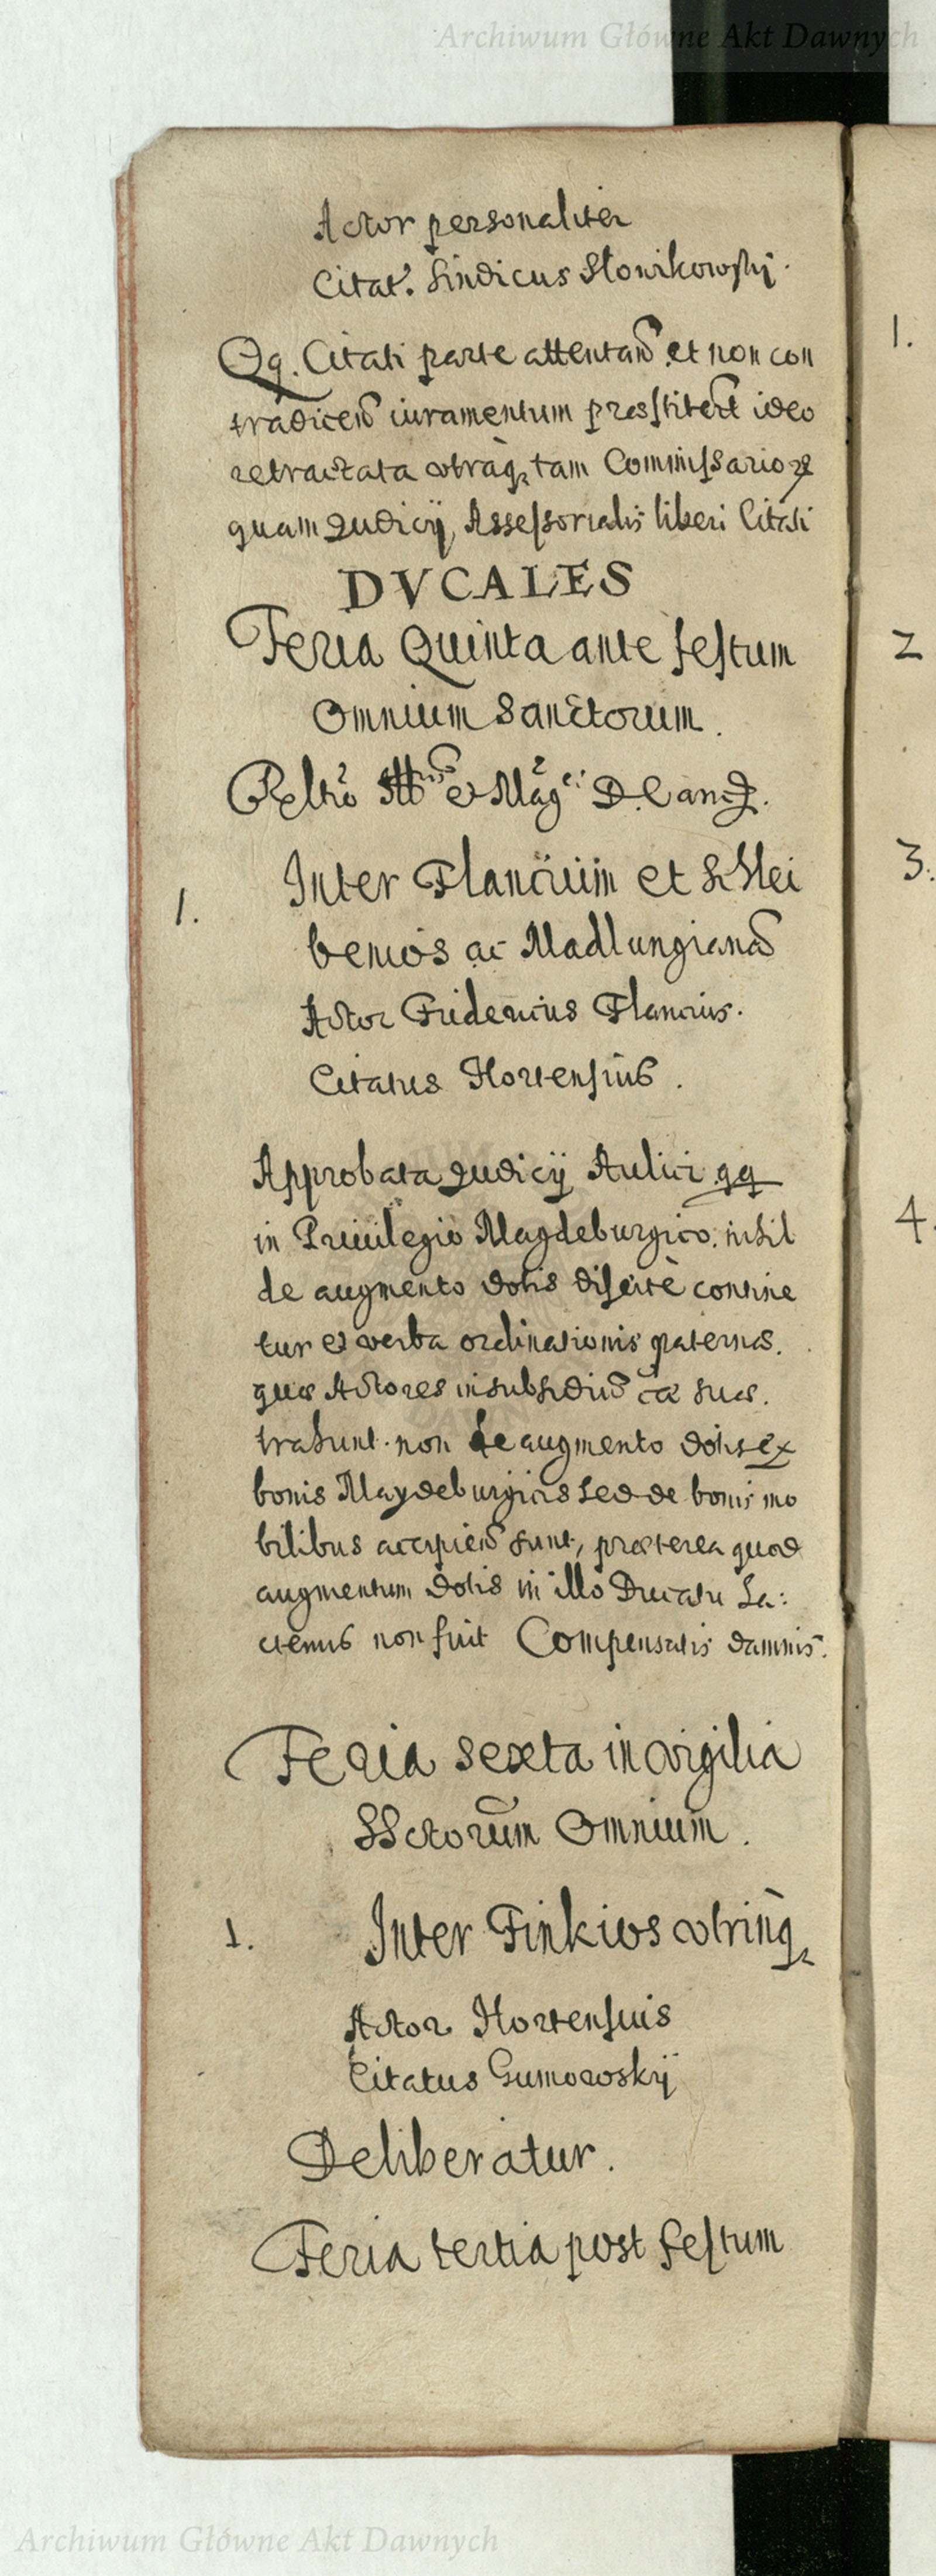 Archiwum Główne Akt Dawnych
Actor personaliter
Citat. Sindicus Słowikowskj.
Qq. Citati parte attentans et non con
tradicens iuramentum præstiterit ideo
retractata vtraq tam Commissarior
quam Judicij Assessorialis liberi Citati
DVCALES
Feria Quinta ante festum
Omnium Sanctorum.
et Mag
1. Inter Plancium et Schlei
benios ac Madlungianos
Actor Fridericius Plancius.
Citatus Hortensius.
Approbata Judicij Aulici qq
in Priuilegio Magdeburgico nihil
de augmento dotis diserte contine
tur et verba ordinationis paternæ.
quæ Actores in subsidiū cæ suæ.
trahunt non de augmento dotis ex
bonis Maydeburgicis sed de bonis mo
bilibus accipiend sunt, præterea quod
augmentum dotis in illo Ducatu ha:
ctenus non fuit Compensatis damnis.
Feria sexta in vigilia
SSctorum Omnium.
1. Inter Finkios vtrinq
Actor Hortensius
Citatus Gumowskij
Deliberatur.
Feria tertia post festum
1.
2
3.
4.
Archiwum Główne Akt Dawnych